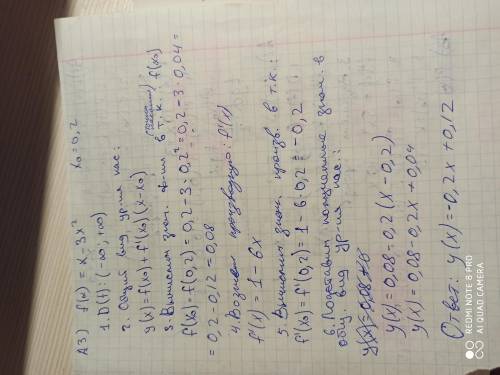 А3) f(x) = x - 3x² x₀ = 0,2
1. D(f): (-∞; +∞)
2. Общий вид ур-ия кас:
y(x) = f(x₀) + f'(x₀)(x-x₀)
3. Вычислим знач. ф-ии в т.к. f(x₀)
f(x₀) = f(0,2) = 0,2 - 3·0,2² = 0,2 - 3·0,04 =
= 0,2 - 0,12 = 0,08
4. Возьмем производную: f'(x)
f'(x) = 1 - 6x
5. Вычислим знач. произв. в т.к.:
f'(x₀) = f'(0,2) = 1 - 6·0,2 = -0,2
6. Подставим полученные знач. в
общ. вид ур-ия кас:
y(x) = 0,08 - 0,2(x - 0,2)
y(x) = 0,08 - 0,2x + 0,04
Ответ: y(x) = -0,2x + 0,12
REDMI NOTE 8 PRO
AI QUAD CAMERA